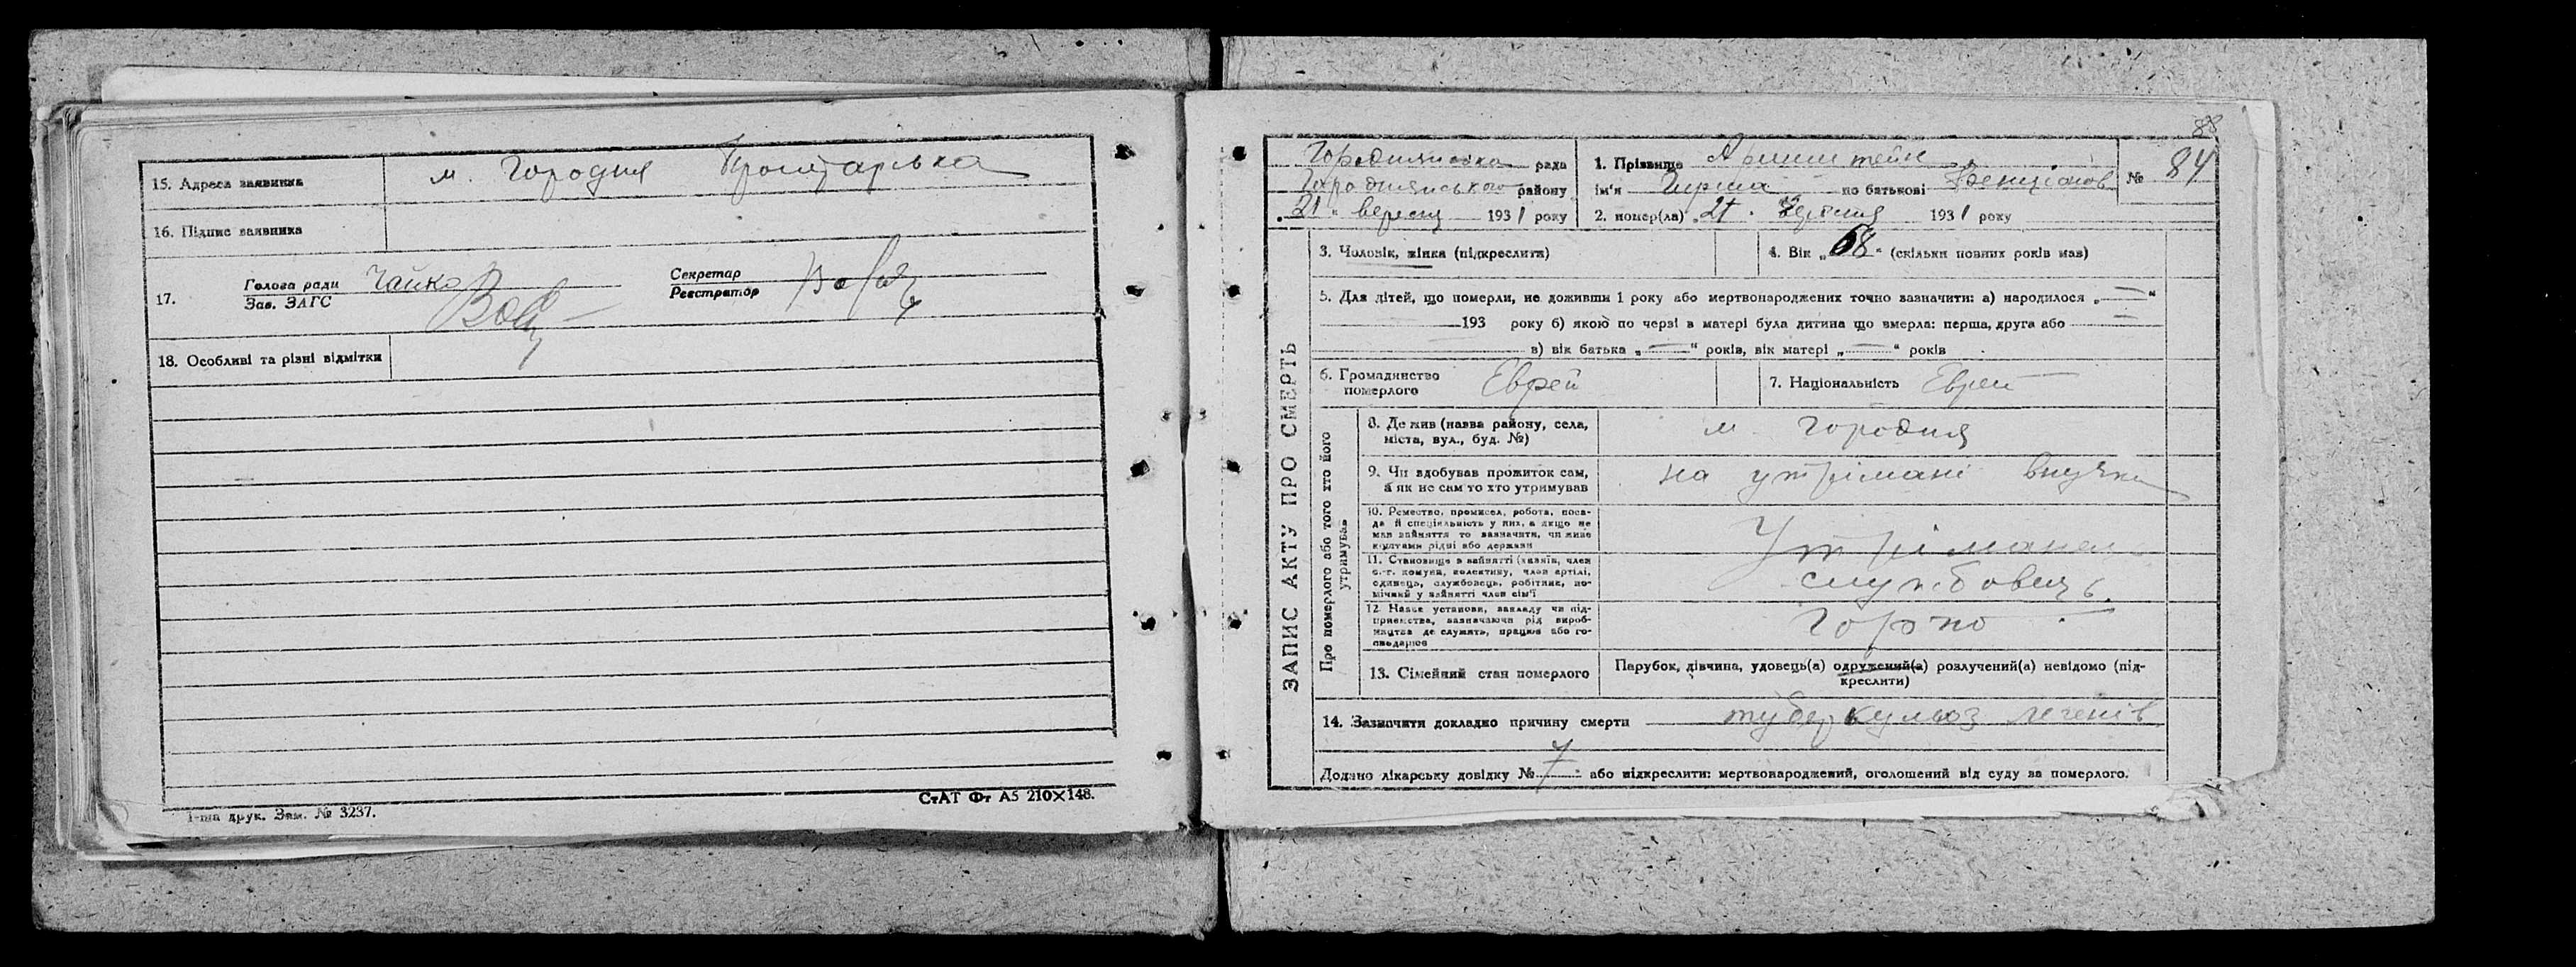 15. Адреса заявника м. Городня Пролетарська
16. Підпис заявника
17. Голова ради Чайка Секретар
Зав. ЗАГС Реєстратор
18. Особливі та різні відмітки
1-ша друк. Зам. № 3237.
СтАТ Фт А5 210×148.
88
рада
Городнянського району
„21“ вересня 1931 року
1. Прізвище
ім'я Гирша по батькові
№ 84
2. помер(ла) „21“ вересня 1931 року
ЗАПИС АКТУ ПРО СМЕРТЬ
3. Чоловік, жінка (підкреслити)
4. Вік „68“ (скільки повних років мав)
5. Для дітей, що померли, не доживши 1 року або мертвонароджених точно зазначити: а) народилося „—“
193 року б) якою по черзі в матері була дитина що вмерла: перша, друга або
в) вік батька „—“ років, вік матері „—“ років
6. Громадянство Еврей
померлого
7. Національність Еврей
Про померлого або того хто його
утримував
8. Де жив (назва району, села,
міста, вул., буд. №)
м. Городня
9. Чи здобував прожиток сам,
а як не сам то хто утримував
на утрімані внучки
10. Ремество, промисел, робота, поса-
да й спеціяльність у них, а якщо не
мав заняття то зазначити, чи живе
коштами рідні або держави
11. Становище в занятті (хазяїн, член
с.-г. комуни, колективу, член артілі,
одинець, службовець, робітник, по-
мічний у занятті член сім'ї
службовець
12. Назва установи, закладу чи під-
приємства, зазначаючи рід вироб-
ництва де служить, працює або го-
сподарює
13. Сімейний стан померлого
Парубок, дівчина, удовець(а) одружений(а) розлучений(а) невідомо (під-
креслити)
14. Зазначити докладно причину смерти туберкульоз легенів
Додано лікарську довідку № 7 або підкреслити: мертвонароджений, оголошений від суду за померлого.